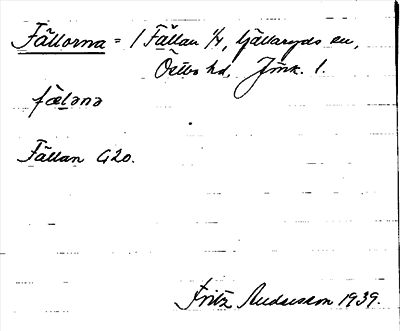 Fällorna = 1 Fällan 1/4, Gällaryds sn,
Östbo hd, Jönk. l.
fæḷəṇə
Fällan G20.
Fritz Andersson 1939.